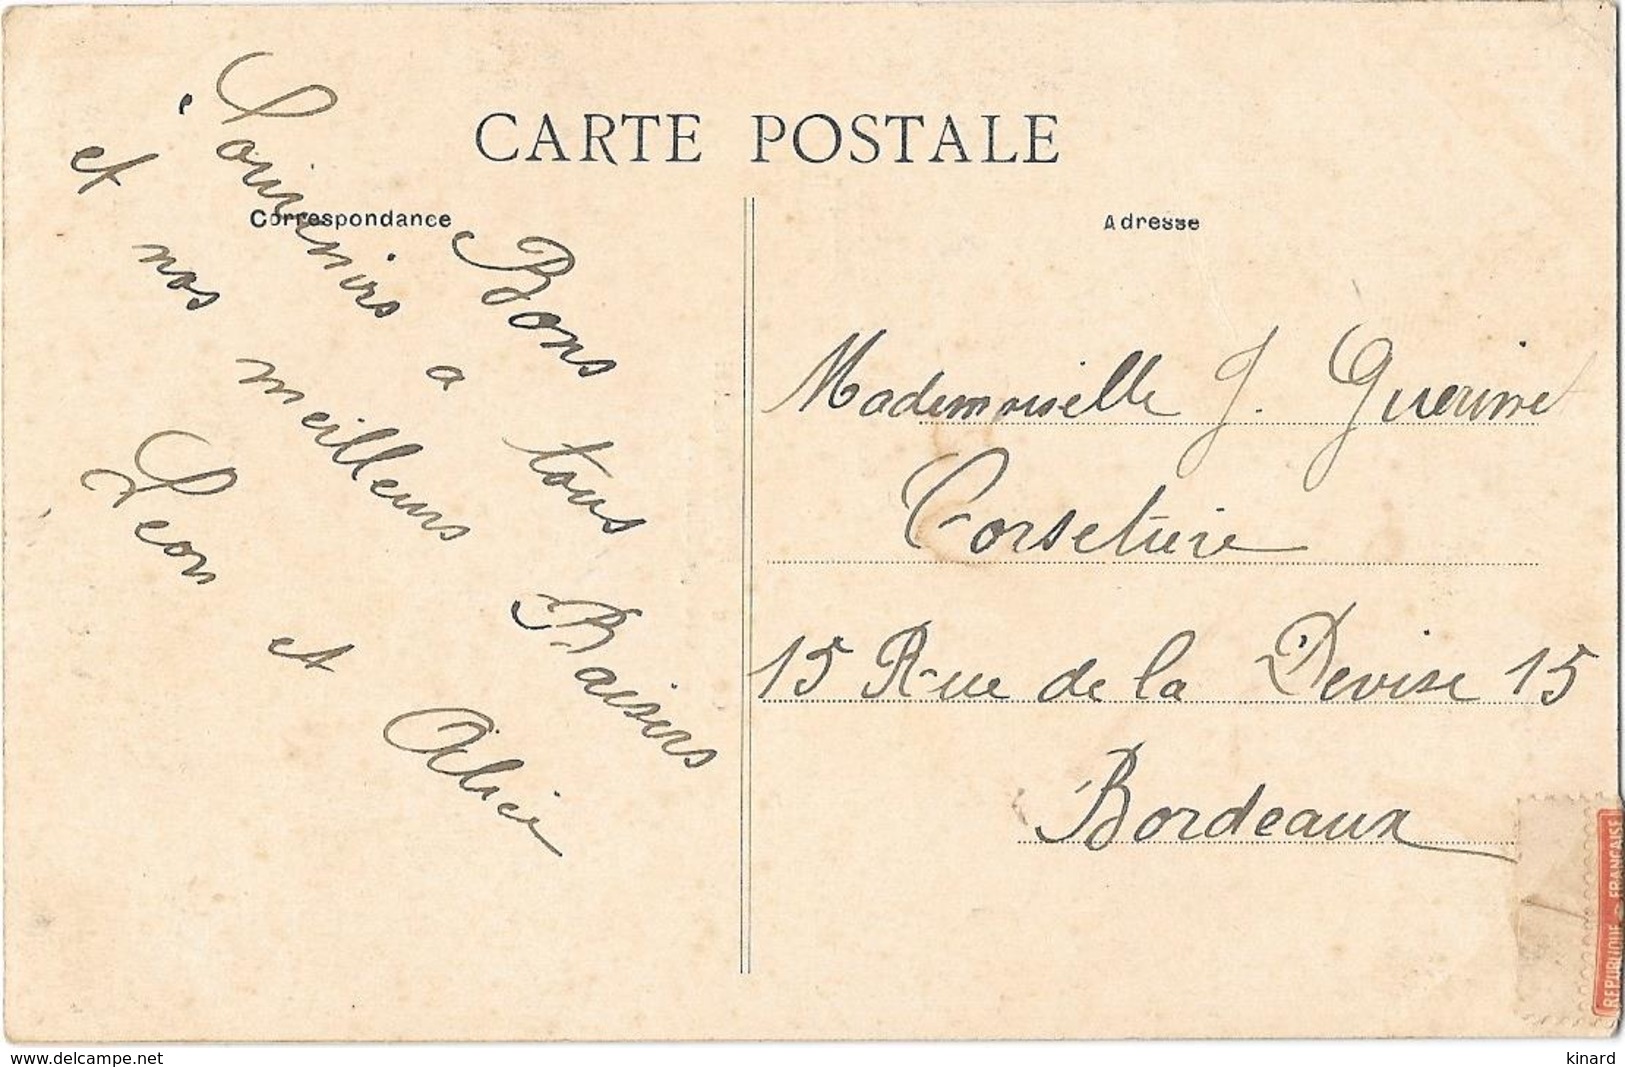 CARTE POSTALE
Correspondance
Adresse
Bons
Souvenirs a tous
et nos meilleurs Baisers
Leon et Alice
Mademoiselle J. Guerinet
Corsetière
15 Rue de la Devise 15
Bordeaux
REPUBLIQUE FRANÇAISE
www.delcampe.net
kinard